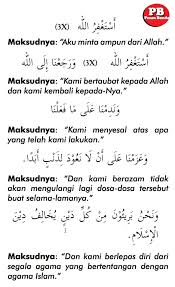 PB
Pesan Bonda
أَسْتَغْفِرُ اللَّه (3X)
Maksudnya: “Aku minta ampun dari Allah.”
أَسْتَغْفِرُ اللَّه (3X) وَرَجَعْنَا إِلَى اللَّه
Maksudnya: “Kami bertaubat kepada Allah
dan kami kembali kepada-Nya.”
وَنَدِمْنَا عَلَى مَا فَعَلْنَا
Maksudnya: “Kami menyesal atas apa
yang telah kami lakukan.”
وَعَزَمْنَا عَلَى أَنْ لَا نَعُوْدَ لِذَنْبٍ أَبَدًا.
Maksudnya: “Dan kami berazam tidak
akan mengulangi lagi dosa-dosa tersebut
buat selama-lamanya.”
وَنَحْنُ بَرِيئُوْنَ مِنْ كُلِّ دِيْنٍ يُخَالِفُ دِيْنَ
الْإِسْلَامِ.
Maksudnya: “Dan kami berlepas diri dari
segala agama yang bertentangan dengan
agama Islam.”